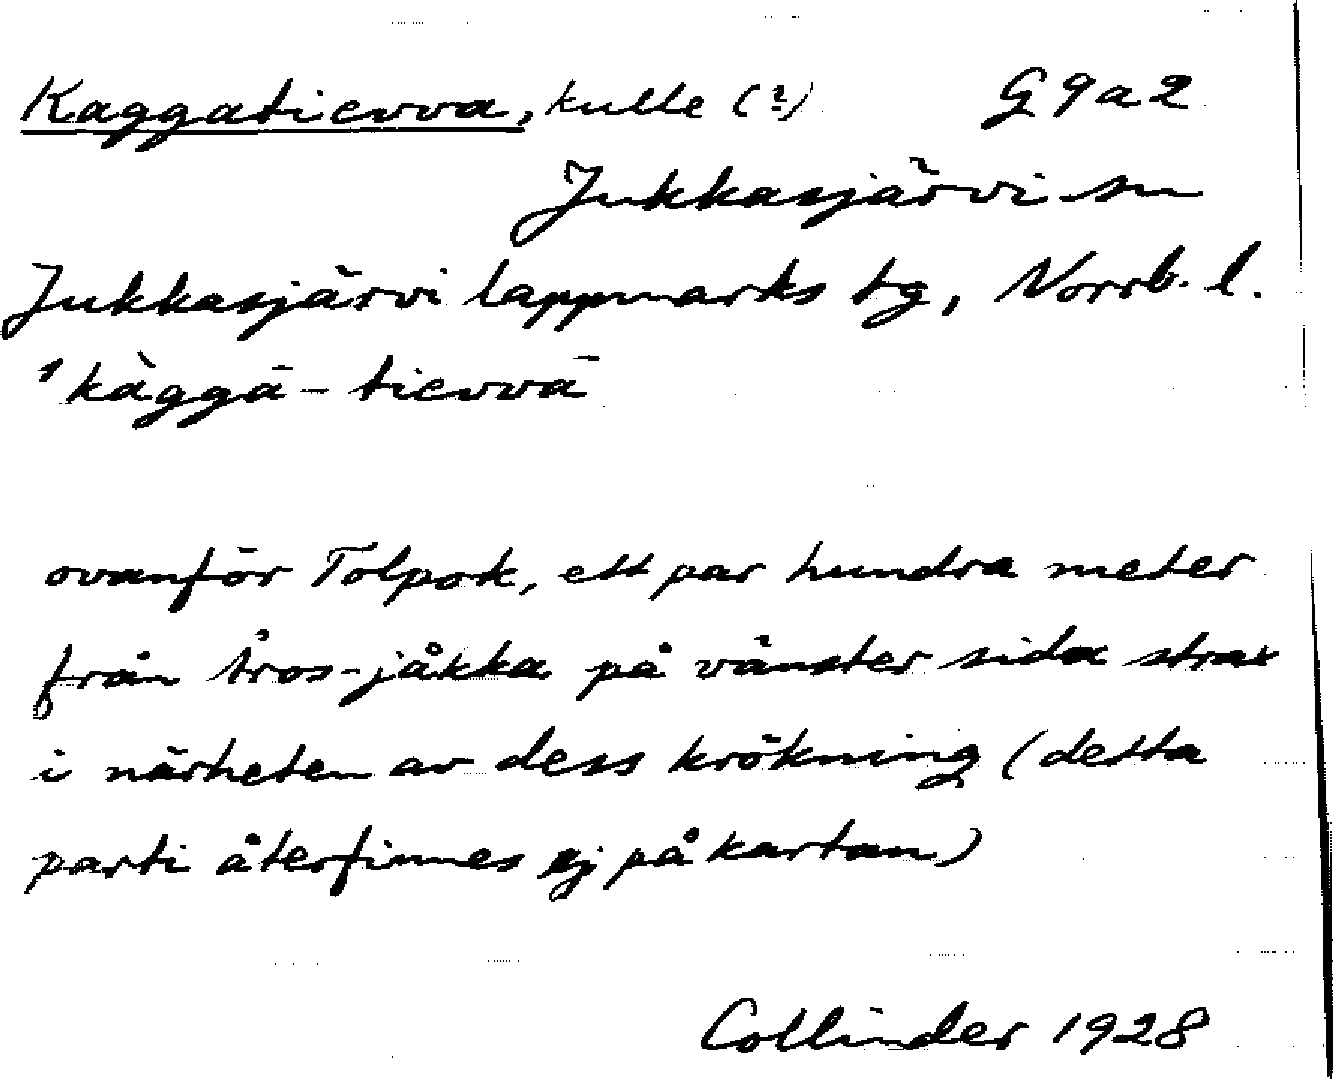 Kaggatievva, kulle (?) G 9 a 2
Jukkasjärvi sn
Jukkasjärvi lappmarks tg, Norrb. l.
ˈkàggā-tievvā
ovanför Tolpok, ett par hundra meter
från tros-jåkka på vänster sida strax
i närheten av dess krökning (detta
parti återfinnes ej på kartan)
Collinder 1928